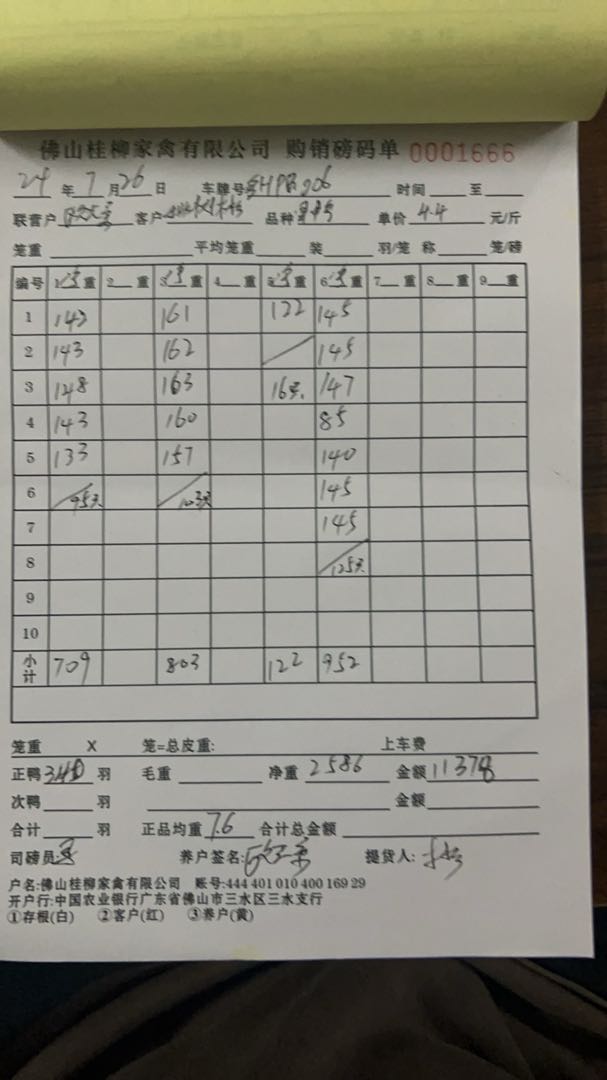 佛山桂柳家禽有限公司 购销磅码单 0001666
24 年 7 月 26 日 车牌号 时间 至
联营户 客户 品种 单价 4.4 元/斤
笼重 平均笼重 装 羽/笼 称 笼/磅
编号 1 重 2 重 3 重 4 重 5 重 6 重 7 重 8 重 9 重
1 142 161 122 145
2 143 162 145
3 148 163 16只 147
4 143 160 85
5 133 157 140
6 95只 103只 145
7 145
8 125只
9
10
小计 709 803 122 952
笼重 X 笼=总皮重: 上车费
正鸭 340 羽 毛重 净重 2586 金额 11378
次鸭 羽 金额
合计 羽 正品均重 7.6 合计总金额
司磅员: 养户签名: 提货人:
户名:佛山桂柳家禽有限公司 账号:444 401 010 400 169 29
开户行:中国农业银行广东省佛山市三水区三水支行
①存根(白) ②客户(红) ③养户(黄)